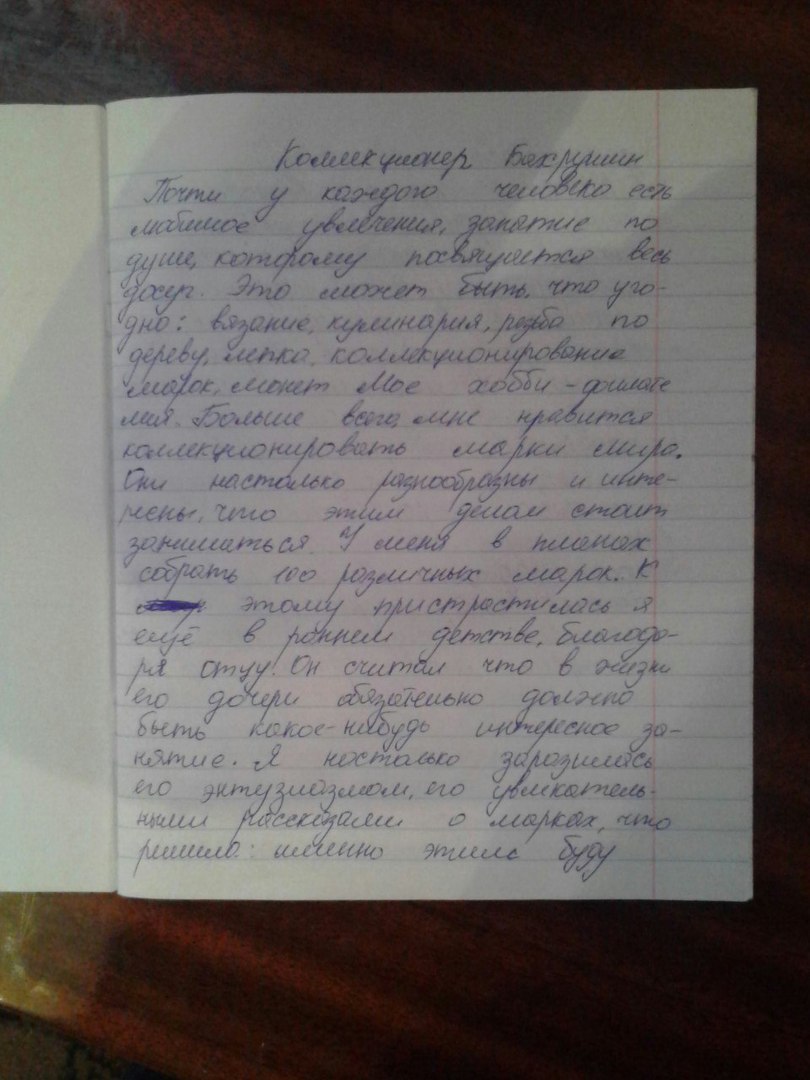 Коллекционер Бахрушин
Почти у каждого человека есть
любимое увлечения, занятие по
душе, которому посвящается весь
досуг. Это может быть, что уго-
дно: вязание, кулинария, резьба по
дереву, лепка, коллекционирование
марок, монет Мое хобби -
лия. Больше всего, мне нравится
коллекционировать марки мира.
Они настолько разнообразны и инте-
ресны, что этим делом стоит
заниматься. У меня в планах
собрать 100 различных марок. К
этому пристрастилась я
ещё в раннем детстве, благода-
ря отцу. Он считал что в жизни
его дочери обязательно должно
быть какое-нибудь интересное за-
нятие. Я настолько заразилась
его энтузиазмом, его увлекатель-
ными рассказами о марках, что
решила: именно этим буду